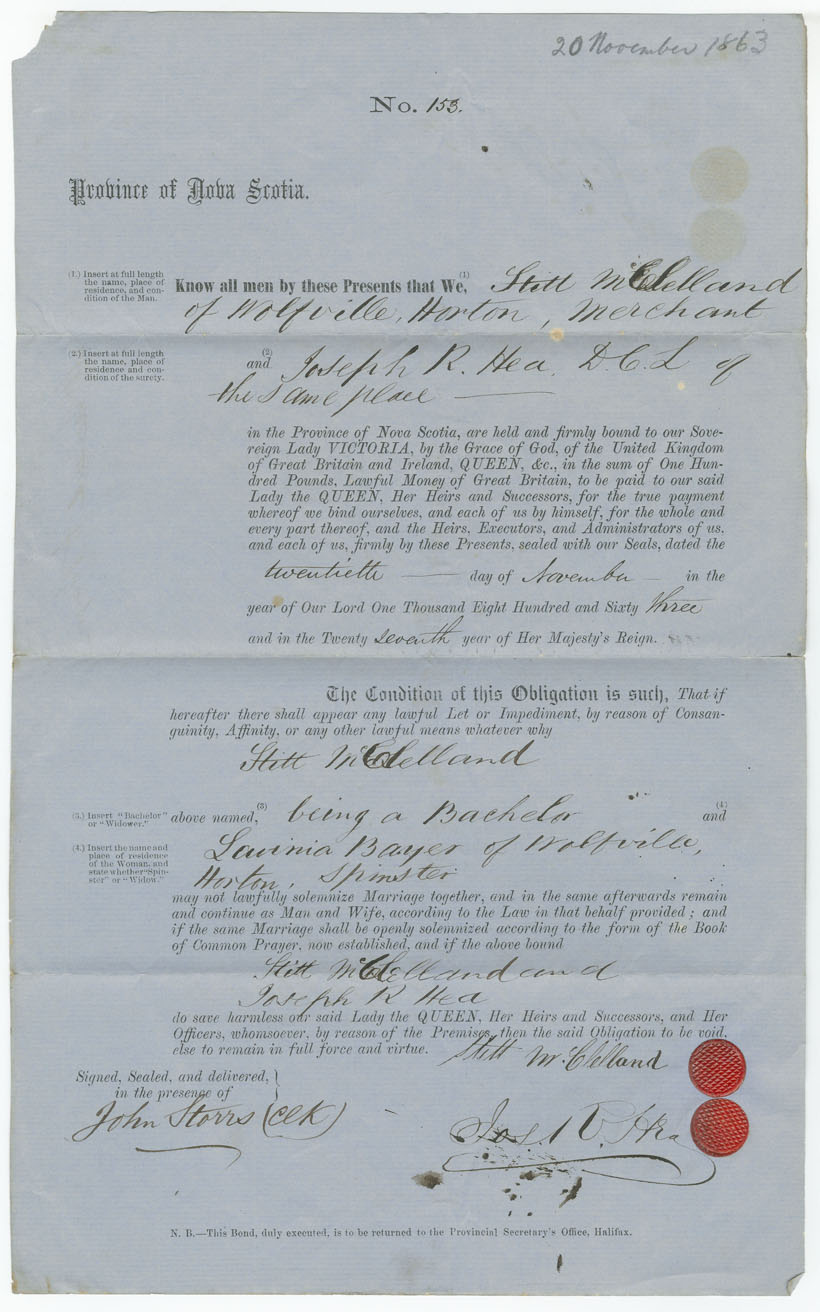 20 November 1863
No. 153.
Province of Nova Scotia.
(1.) Insert at full length
the name, place of
residence, and con-
dition of the Man.
Know all men by these Presents that We,(1) Stitt McClelland
of Wolfville, Horton, Merchant
(2.) Insert at full length
the name, place of
residence and con-
dition of the surety.
and(2) Joseph R. Hea, D.C.L of
the same place
in the Province of Nova Scotia, are held and firmly bound to our Sove-
reign Lady VICTORIA, by the Grace of God, of the United Kingdom
of Great Britain and Ireland, QUEEN, &c., in the sum of One Hun-
dred Pounds, Lawful Money of Great Britain, to be paid to our said
Lady the QUEEN, Her Heirs and Successors, for the true payment
whereof we bind ourselves, and each of us by himself, for the whole and
every part thereof, and the Heirs, Executors, and Administrators of us,
and each of us, firmly by these Presents, sealed with our Seals, dated the
twentieth — day of November — in the
year of Our Lord One Thousand Eight Hundred and Sixty three
and in the Twenty seventh year of Her Majesty's Reign.
The Condition of this Obligation is such, That if
hereafter there shall appear any lawful Let or Impediment, by reason of Consan-
guinity, Affinity, or any other lawful means whatever why
Stitt McClelland
(3.) Insert "Bachelor"
or "Widower."
above named,(3) being a Bachelor and(4)
(4.) Insert the name and
place of residence
of the Woman, and
state whether "Spin-
ster" or "Widow."
Lavinia Bayer of Wolfville,
Horton, Spinster
may not lawfully solemnize Marriage together, and in the same afterwards remain
and continue as Man and Wife, according to the Law in that behalf provided; and
if the same Marriage shall be openly solemnized according to the form of the Book
of Common Prayer, now established, and if the above bound
Stitt McClelland and
Joseph R Hea
do save harmless our said Lady the QUEEN, Her Heirs and Successors, and Her
Officers, whomsoever, by reason of the Premises, then the said Obligation to be void,
else to remain in full force and virtue.
Stitt McClelland
Signed, Sealed, and delivered,
in the presence of
John Storrs (Clk)
Jos. R. Hea
N. B.—This Bond, duly executed, is to be returned to the Provincial Secretary's Office, Halifax.